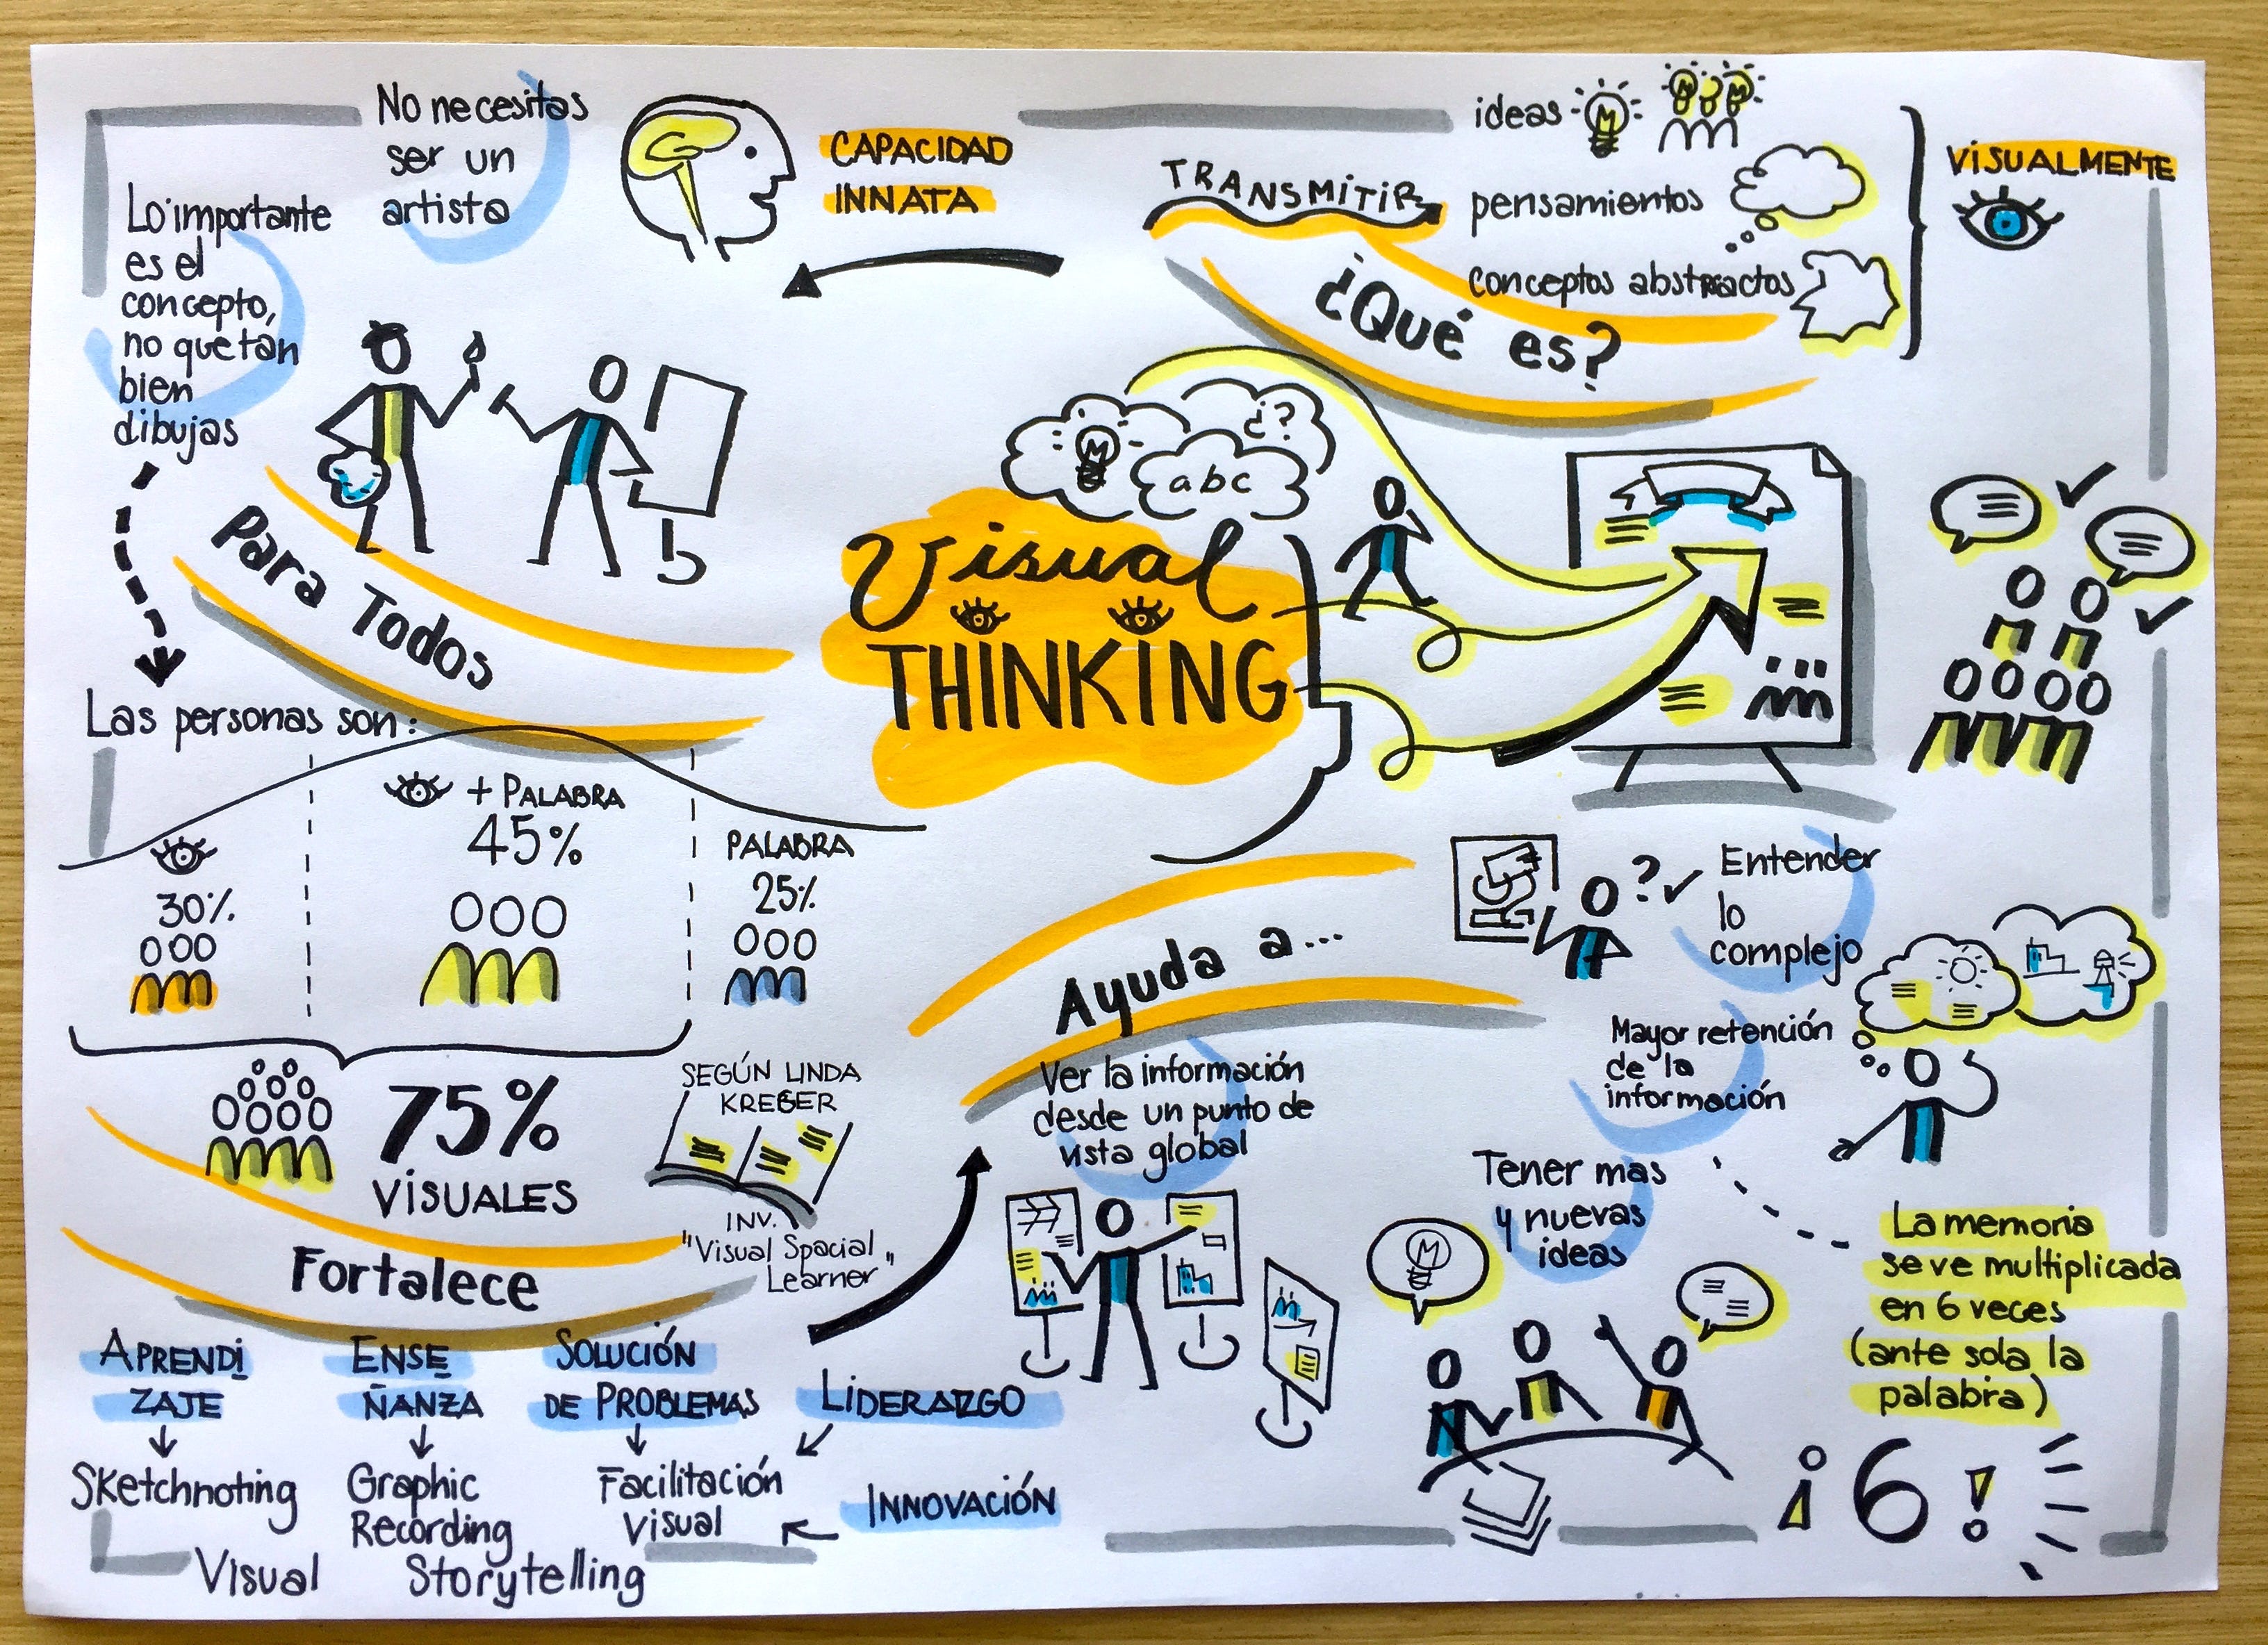 Visual
THINKING
¿?
abc
¿Qué es?
TRANSMITIR
ideas
pensamientos
conceptos abstractos
VISUALMENTE
CAPACIDAD
INNATA
No necesitas
ser un
artista
Lo importante
es el
concepto,
no que tan
bien
dibujas
Para Todos
Las personas son:
30%
+ PALABRA
45%
PALABRA
25%
75%
VISUALES
SEGÚN LINDA
KREGER
INV.
"Visual Spacial
Learner"
Fortalece
APRENDI
ZAJE
Sketchnoting
ENSE
ÑANZA
Graphic
Recording
SOLUCIÓN
DE PROBLEMAS
Facilitación
Visual
LIDERAZGO
INNOVACIÓN
Visual Storytelling
Ayuda a...
Ver la información
desde un punto de
vista global
?
Entender
lo
complejo
Mayor retención
de la
información
Tener mas
y nuevas
ideas
La memoria
se ve multiplicada
en 6 veces
(ante sola la
palabra)
¡6!